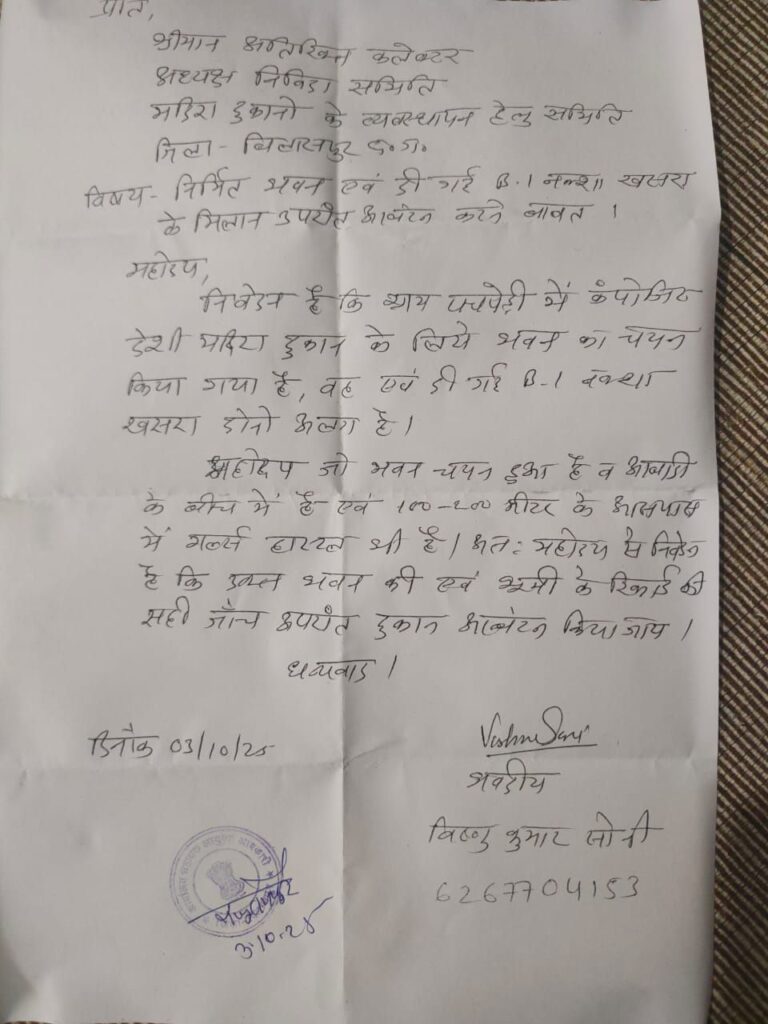 प्रति,
श्रीमान अतिरिक्त कलेक्टर
अध्यक्ष निविदा समिति
मदिरा दुकानो के व्यवस्थापन हेतु समिति
जिला - बिलासपुर छ.ग.
विषय - निर्मित भवन एवं दी गई B-1 नक्शा खसरा
के मिलान उपरांत आबंटन करने बावत ।
महोदय,
निवेदन है कि ग्राम पचपेड़ी में कंपोजिट
देशी मदिरा दुकान के लिये भवन का चयन
किया गया है, वह एवं दी गई B-1 नक्शा
खसरा दोनो अलग है।
महोदय जो भवन चयन हुआ है व आबादी
के बीच में है एवं 100-200 मीटर के आसपास
में गर्ल्स हास्टल भी है। अत: महोदय से निवेदन
है कि उक्त भवन की एवं भूमी के रिकार्ड की
सही जाँच उपरांत दुकान आबंटन किया जाय ।
धन्यवाद ।
दिनाँक 03/10/25
भवदीय
विष्णु कुमार सोनी
6267704153
3.10.25